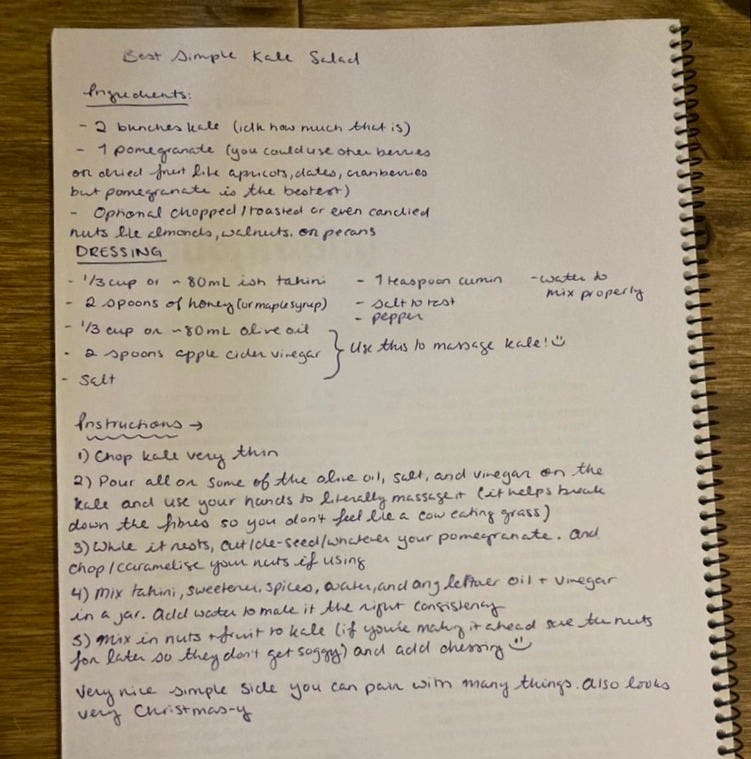 Best Simple Kale Salad
Ingredients:
- 2 bunches kale (idk how much that is)
- 1 pomegranate (you could use other berries
or dried fruit like apricots, dates, cranberries
but pomegranate is the bestest)
- Optional chopped/toasted or even candied
nuts like almonds, walnuts, or pecans
DRESSING
- 1/3 cup or ~ 80mL ish tahini
- 2 spoons of honey (or maple syrup)
- 1/3 cup or ~80mL olive oil
- 2 spoons apple cider vinegar
- Salt
} Use this to massage kale! ☺
- 1 teaspoon cumin
- salt to tast
- pepper
- water to
mix properly
Instructions →
1) Chop kale very thin
2) Pour all or some of the olive oil, salt, and vinegar on the
kale and use your hands to literally massage it (it helps break
down the fibres so you don't feel like a cow eating grass)
3) While it rests, cut/de-seed/whatever your pomegranate. and
chop/caramelise your nuts if using
4) Mix tahini, sweetener, spices, water, and any leftover oil + vinegar
in a jar. Add water to make it the right consistency
5) Mix in nuts + fruit to kale (if you're making it ahead save the nuts
for later so they don't get soggy) and add dressing ☺
Very nice simple side you can pair with many things. Also looks
very Christmas-y